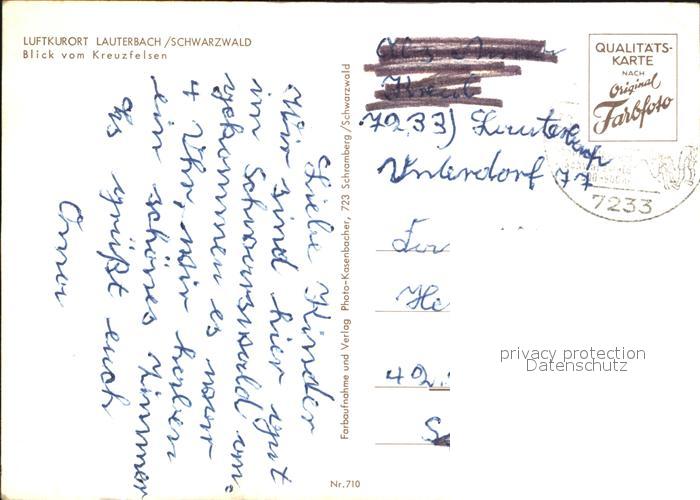 LUFTKURORT LAUTERBACH/SCHWARZWALD
Blick vom Kreuzfelsen
Liebe Kinder
Wir sind hier gut
im Schwarzwald an-
gekommen es war
4 Uhr, wir haben
ein schönes Zimmer
Es grüßt euch
Farbaufnahme und Verlag Photo-Kasenbacher, 723 Schramberg/Schwarzwald
Nr. 710
7233) Lauterbach
Unterdorf 77
QUALITÄTS-
KARTE
NACH
Original
Farbfoto
7233
He
402
privacy protection
Datenschutz